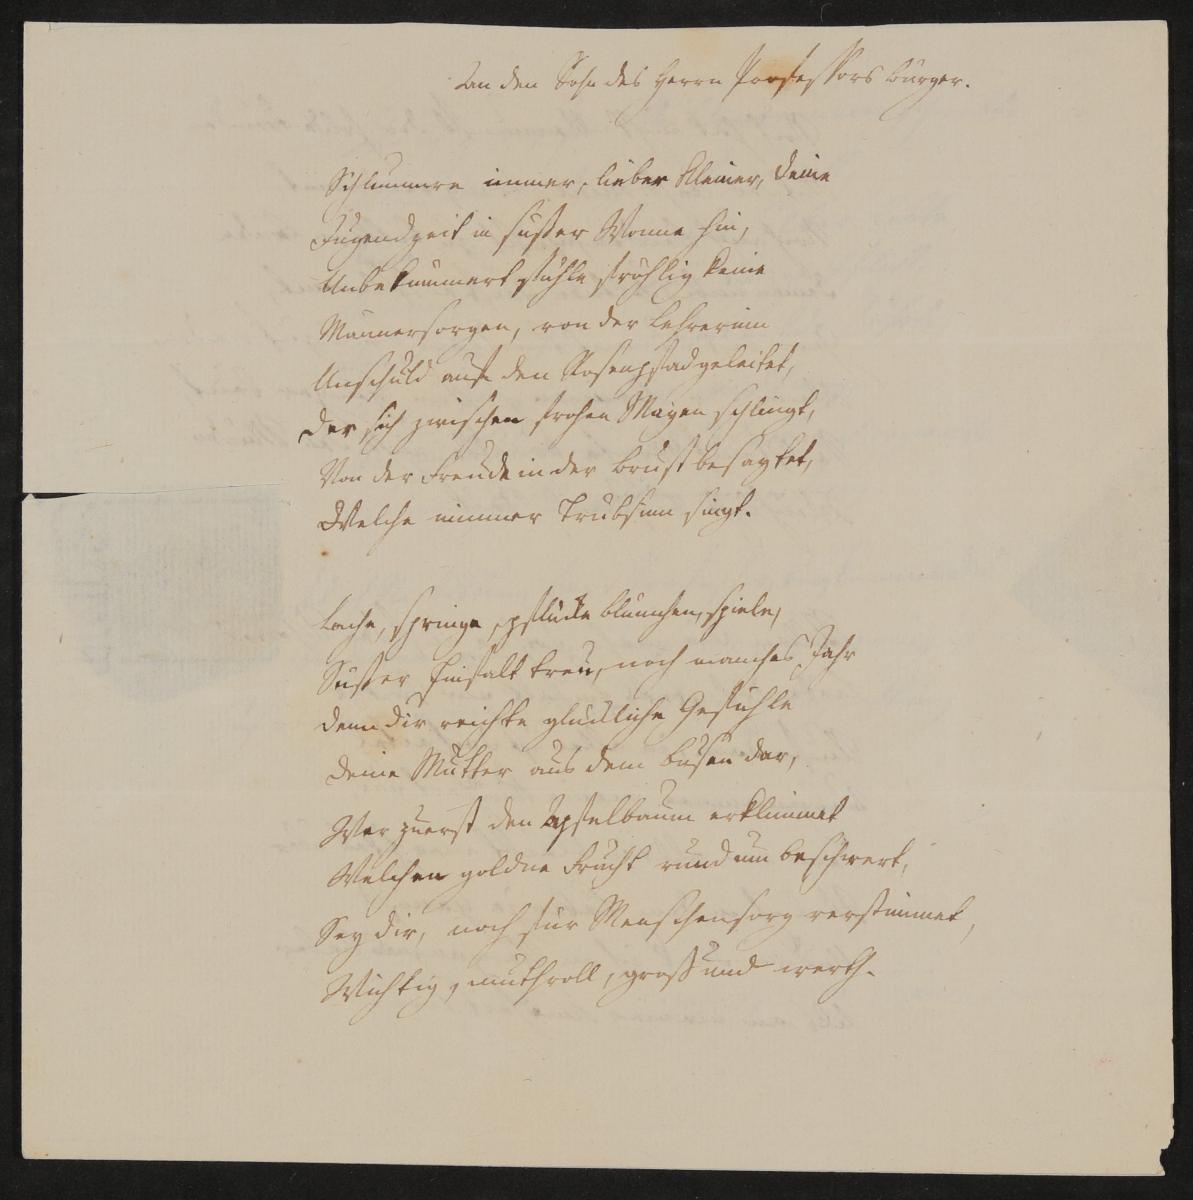 An den Sohn des Herrn Professors Bürger.
Schlummre immer, lieber Kleiner, deine
Jugendzeit in süsser Wonne hin,
Unbekümmert fühle fröhlig keine
Männersorgen, von der Lehrerinn
Unschuld auf den Rosenpfad geleitet,
Der sich zwischen frohen Mayen schlingt,
Von der Freude in der Brust besaytet,
Welche nimmer Trübsinn singt.
Lache, springe, pflücke Blümchen, spiele,
Süsser Einfalt treu, noch manches Jahr
Denn dir reichte glückliche Gefühle
Deine Mutter aus dem Busen dar,
Wer zuerst den Apfelbaum erklimmet
Welchen goldne Frucht rund um beschwert,
Sey dir, noch für Menschensorg verstimmet,
Wichtig, muthvoll, gross und werth.